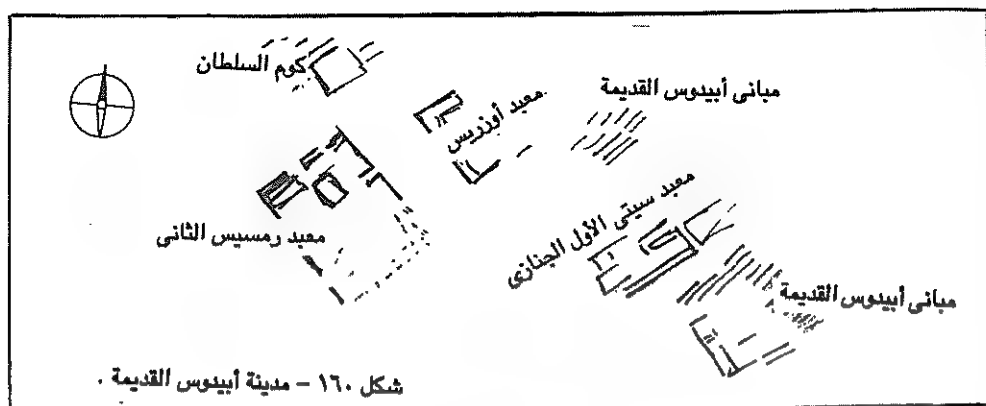 كوم السلطان
مبانى أبيدوس القديمة
معبد أوزريس
معبد سيتى الأول الجنازى
معبد رمسيس الثانى
مبانى أبيدوس القديمة
شكل ١٦٠ – مدينة أبيدوس القديمة .